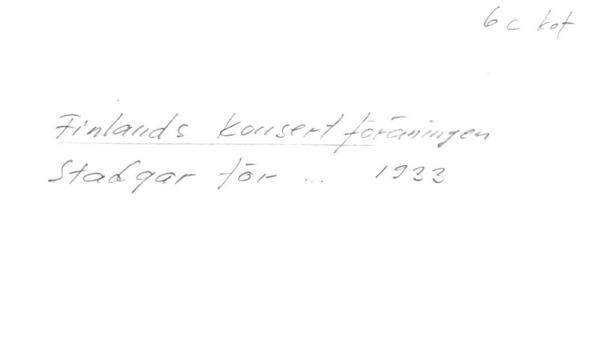 6 c kot
Finlands Konsertföräningen
Stadgar för ... 1933